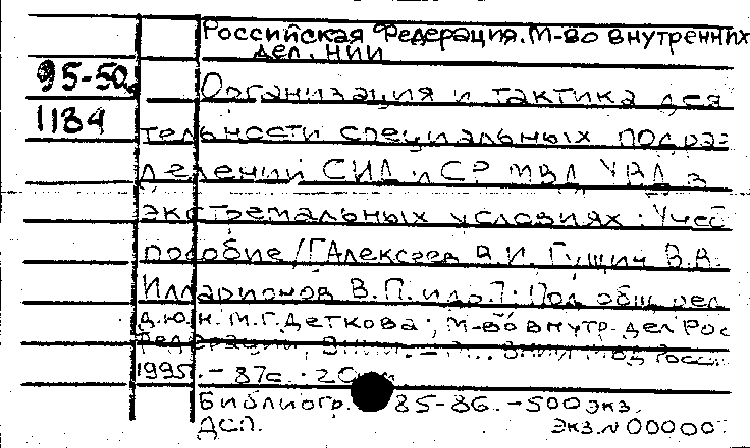 Российская Федерация. М-во внутренних
дел. НИИ
95-50
1184
Организация и тактика дея
тельности специальных подраз-
делений СИД и СР МВД УВД в
экстремальных условиях: Учеб
пособие / [Алексеев В.И. Гущин В.В.
Илларионов В.П. и др.]; Под общ ред
д.ю.н. М.Г. Деткова; М-во внутр. дел Рос
Федерации,
1995. - 87с.
Библиогр. 85-86. - 500 экз.
ДСП. Экз. № 00000